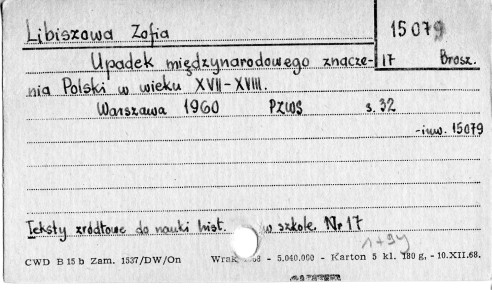 Libiszowa Zofia
15079
Upadek międzynarodowego znacze-
17 Brosz.
nia Polski w wieku XVII-XVIII.
Warszawa 1960 PZWS s. 32
-inw. 15079
Teksty źródłowe do nauki hist. w szkole. Nr 17
1+94
CWD B 15 b Zam. 1537/DW/On - 5.040.000 - Karton 5 kl. 180 g, - 10.XII.68.